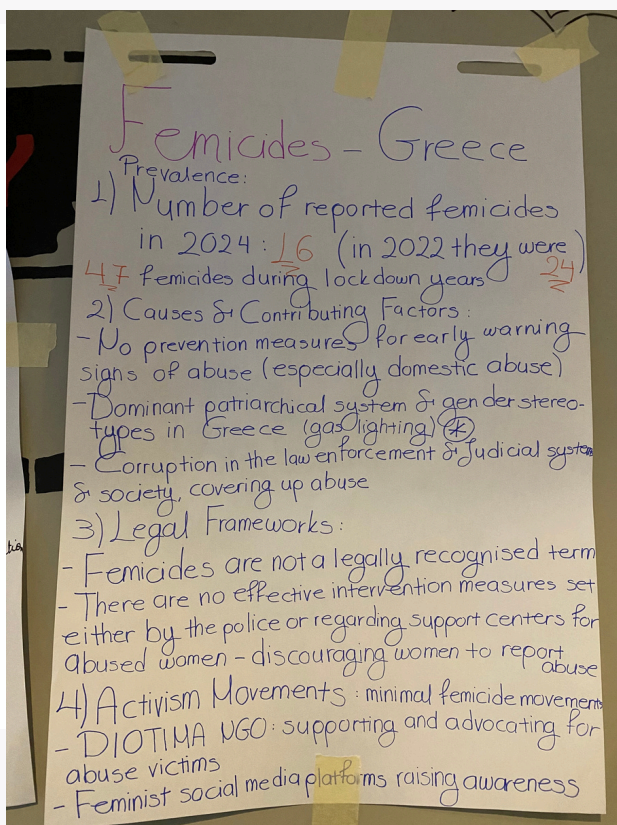 Femicides - Greece
Prevalence:
1) Number of reported femicides
in 2024: 16 (in 2022 they were
24)
47 femicides during lockdown years
2) Causes & Contributing Factors:
- No prevention measures for early warning
signs of abuse (especially domestic abuse)
- Dominant patriarchical system & gender stereo-
types in Greece (gaslighting) *
- Corruption in the law enforcement & Judicial system
& society, covering up abuse
3) Legal Frameworks:
- Femicides are not a legally recognised term
- There are no effective intervention measures set
either by the police or regarding support centers for
abused women - discouraging women to report
abuse
4) Activism Movements: minimal femicide movements
- DIOTIMA NGO: supporting and advocating for
abuse victims
- Feminist social media platforms raising awareness